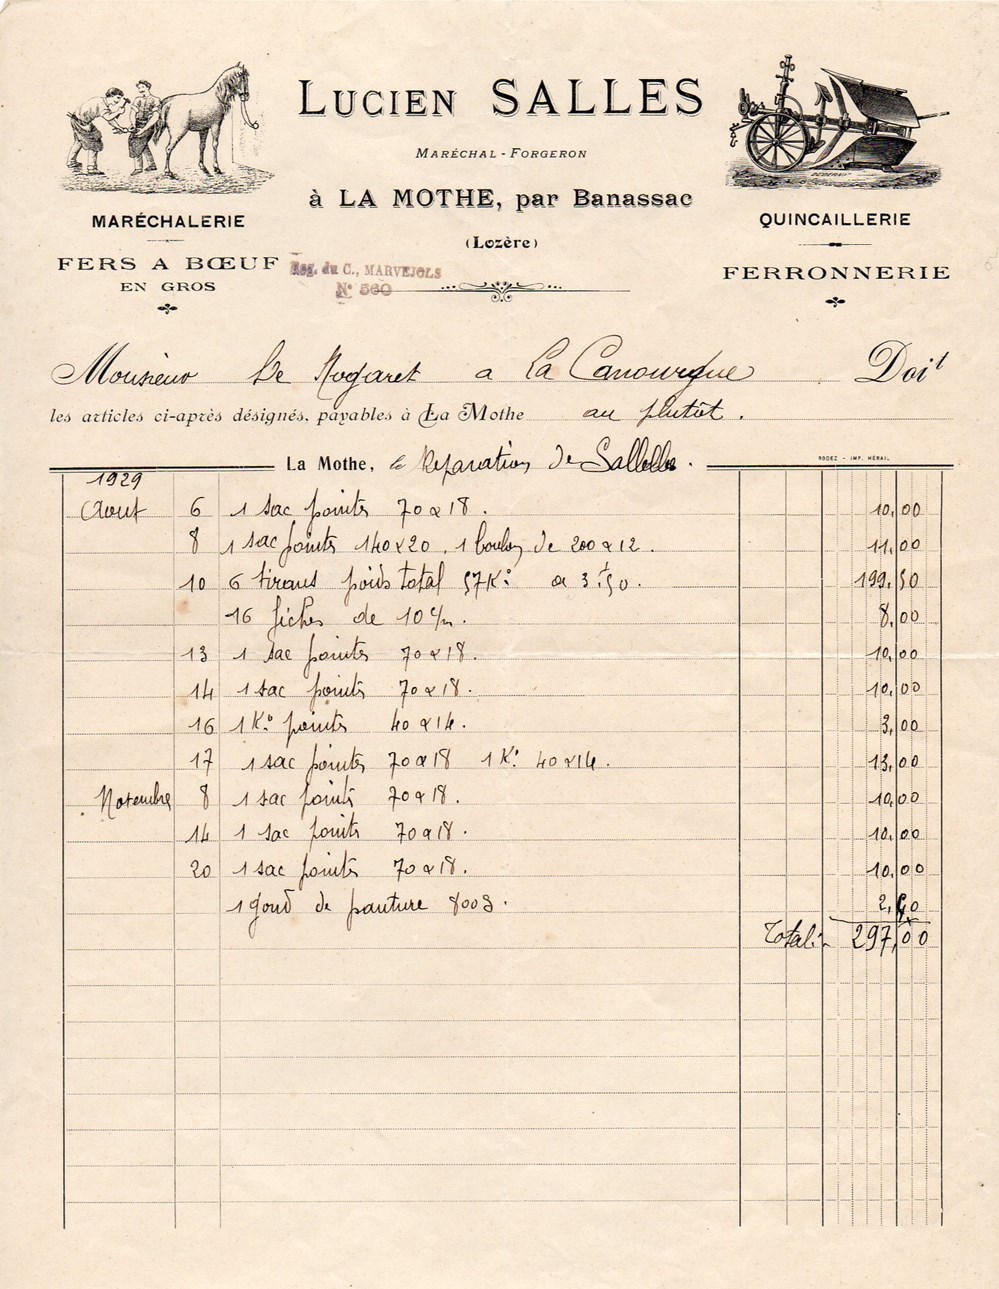 Lucien SALLES
Maréchal-Forgeron
à LA MOTHE, par Banassac
(Lozère)
MARÉCHALERIE
FERS A BŒUF
EN GROS
QUINCAILLERIE
FERRONNERIE
Reg. du C., MARVEJOLS
N° 560
Monsieur De Nogaret a La Canourgue Doit
les articles ci-après désignés, payables à La Mothe au plutôt.
La Mothe, le Reparation De Sallelles.
RODEZ - IMP. HÉRAIL
1929
Aout 6 1 sac pointes 70 x 18. 10,00
8 1 sac pointes 140 x 20. 1 boulon de 200 x 12. 11,00
10 6 tirans poids total 57K° a 3f,50. 199,50
16 fiches de 10 c/m. 8,00
13 1 sac pointes 70 x 18. 10,00
14 1 sac pointes 70 x 18. 10,00
16 1K° pointes 40 x 14. 3,00
17 1 sac pointes 70 x 18 1K° 40 x 14. 13,00
Novembre 8 1 sac points 70 x 18. 10,00
14 1 sac points 70 x 18. 10,00
20 1 sac pointes 70 x 18. 10,00
1 gond de panture 800g. 2,
Total:- 297,00